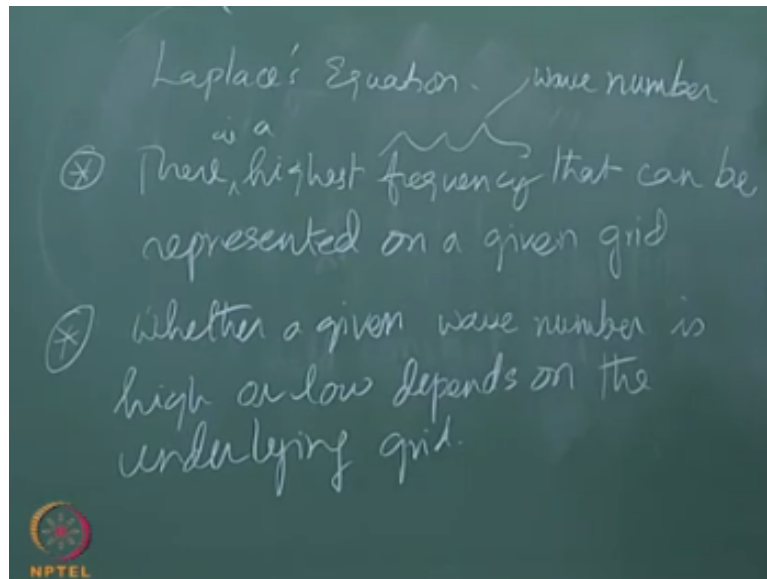 Laplace's Equation. wave number
is a
There, highest frequency that can be
represented on a given grid
Whether a given wave number is
high or low depends on the
underlying grid.
NPTEL